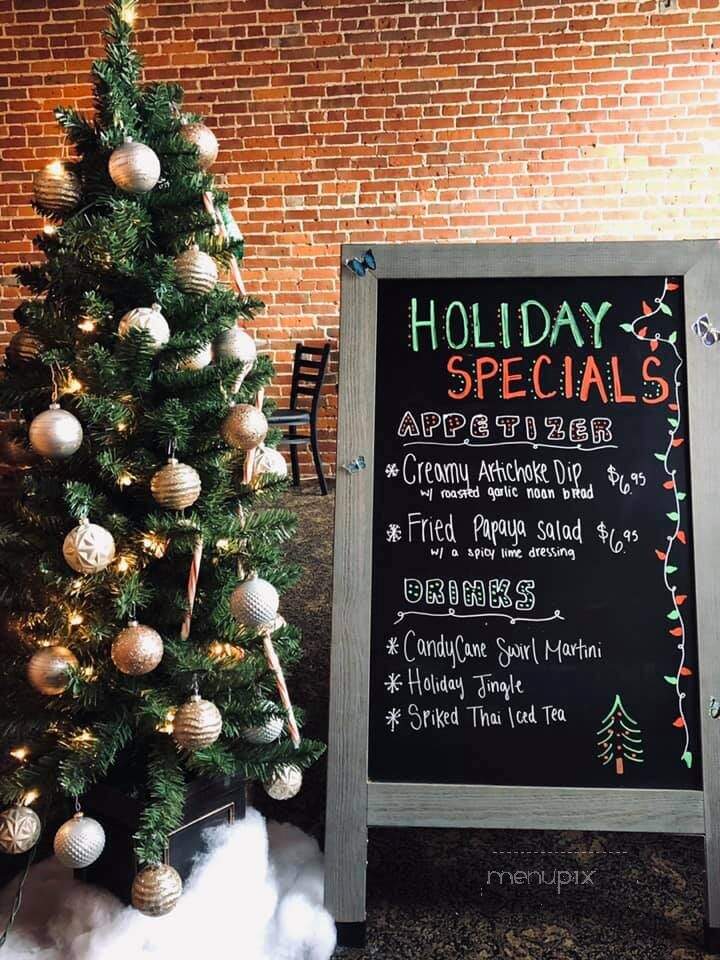 HOLIDAY
SPECIALS
APPETIZER
* Creamy Artichoke Dip $6.95
w/ roasted garlic naan bread
* Fried Papaya salad $6.95
w/ a spicy lime dressing
DRINKS
* CandyCane Swirl Martini
* Holiday Jingle
* Spiked Thai Iced Tea
menupix